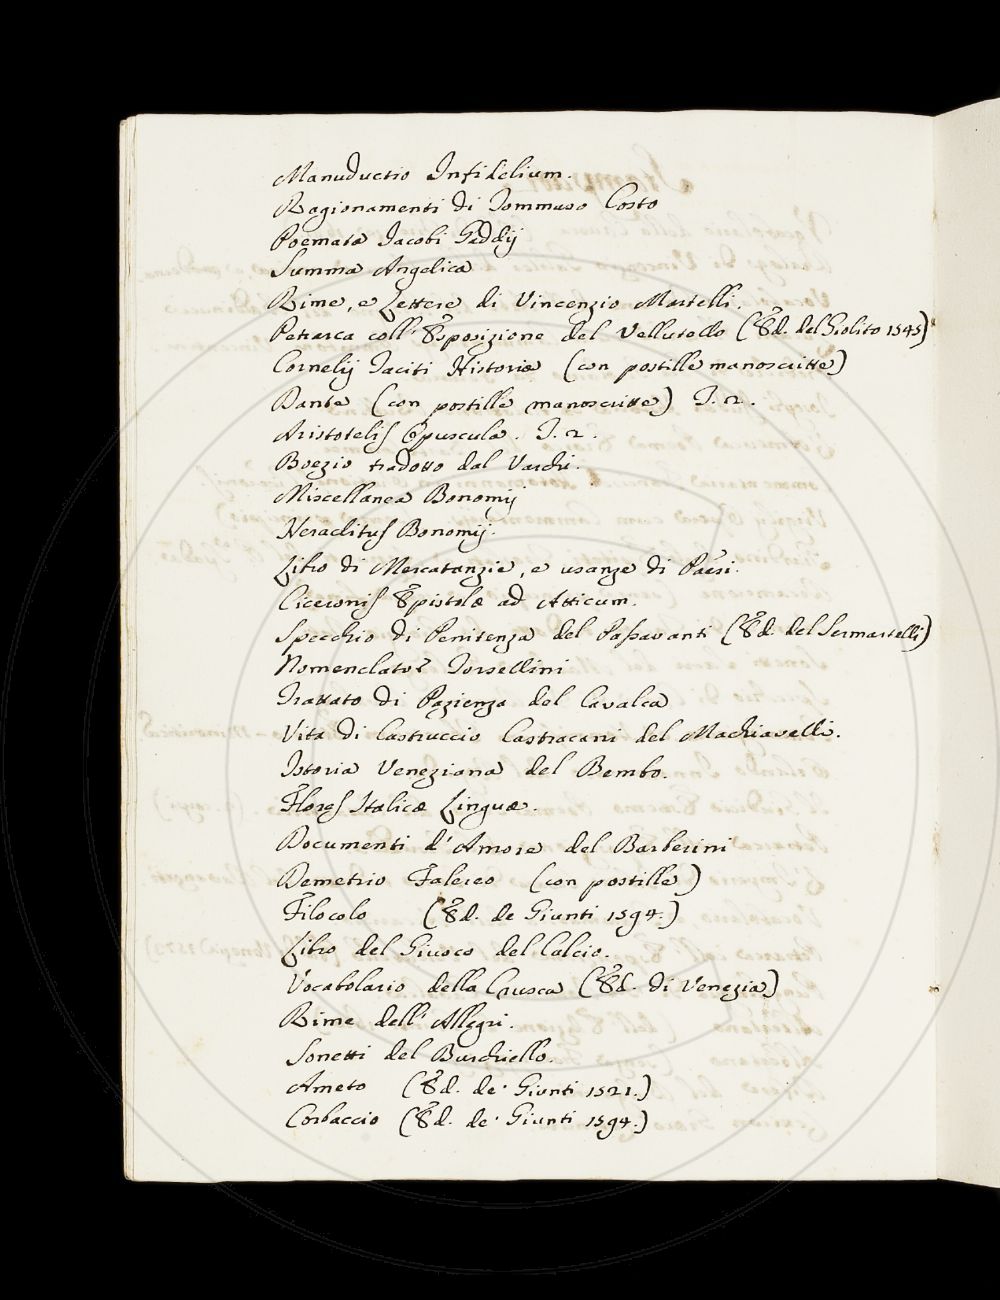 Manuductio Infidelium.
Ragionamenti di Tommaso Costo
Poemata Jacobi Gaddij
Summa Angelica
Rime, e Lettere di Vincenzio Martelli.
Petrarca coll' Esposizione del Vellutello (Ed. del Giolito 1545)
Cornelij Taciti Historiæ (con postille manoscritte)
Dante (con postille manoscritte) T. 2.
Aristotelis Opuscula. T. 2.
Boezio tradotto dal Varchi.
Miscellanea Bonomij
Heraclitus Bonomij.
Libro di Mercatanzie, e usanze di Paesi.
Ciceronis Epistolæ ad Atticum.
Specchio di Penitenza del Passavanti (Ed. del Sermartelli)
Nomenclator Torsellini
Trattato di Pazienza del Cavalca
Vita di Castruccio Castracani del Machiavelli.
Istoria Veneziana del Bembo.
Flores Italicæ Linguæ.
Documenti d'Amore del Barberini
Demetrio Falereo (con postille)
Filocolo (Ed. de Giunti 1594.)
Libro del Giuoco del Calcio.
Vocabolario della Crusca (Ed. di Venezia)
Rime dell' Allegri.
Sonetti del Burchiello.
Ameto (Ed. de' Giunti 1521.)
Corbaccio (Ed. de' Giunti 1594.)